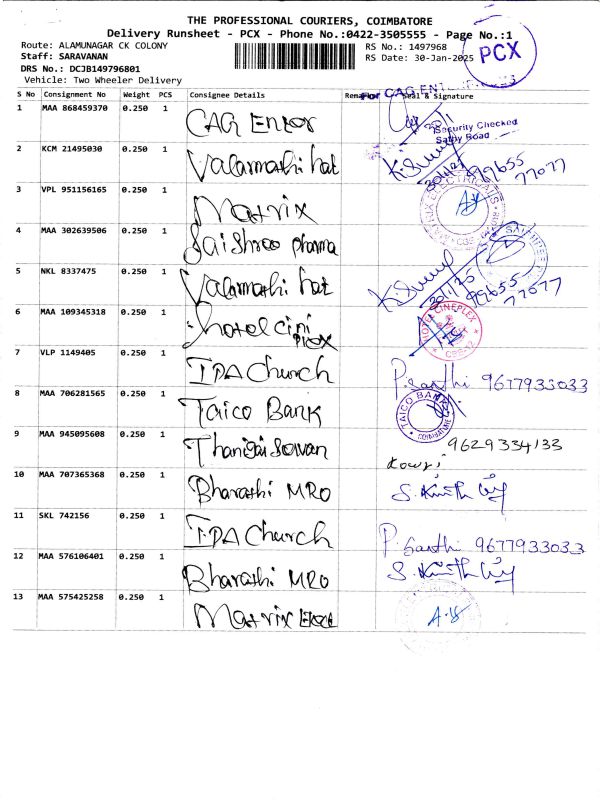 THE PROFESSIONAL COURIERS, COIMBATORE
Delivery Runsheet - PCX - Phone No.:0422-3505555 - Page No.:1
Route: ALAMUNAGAR CK COLONY
RS No.: 1497968
Staff: SARAVANAN
RS Date: 30-Jan-2025
PCX
DRS No.: DCJB149796801
Vehicle: Two Wheeler Delivery
For CAG ENTERPRISES
S No Consignment No Weight PCS Consignee Details Seal & Signature
1 MAA 868459370 0.250 1 CAG Enter
Security Checked
Sathy Road
2 KCM 21495030 0.250 1 Valarmathi hat 99655
77077
3 VPL 951156165 0.250 1 Matrix
4 MAA 302639506 0.250 1 Sai Shree pharma
5 NKL 8337475 0.250 1 Valarmathi hat 30/1/25 99655
77077
6 MAA 109345318 0.250 1 hotel cini
plex
HOTEL CINEPLEX
7 VLP 1149405 0.250 1 IPA Church P. Santhi 9677933033
8 MAA 706281565 0.250 1 Taico Bank TAICO BANK
COIMBATORE
9 MAA 945095608 0.250 1 Thangaiswan 9629334133
10 MAA 707365368 0.250 1 Bharathi MRO
11 SKL 742156 0.250 1 IPA Church P. Santhi 9677933033
12 MAA 576106401 0.250 1 Bharathi MRO
13 MAA 575425258 0.250 1 Matrix